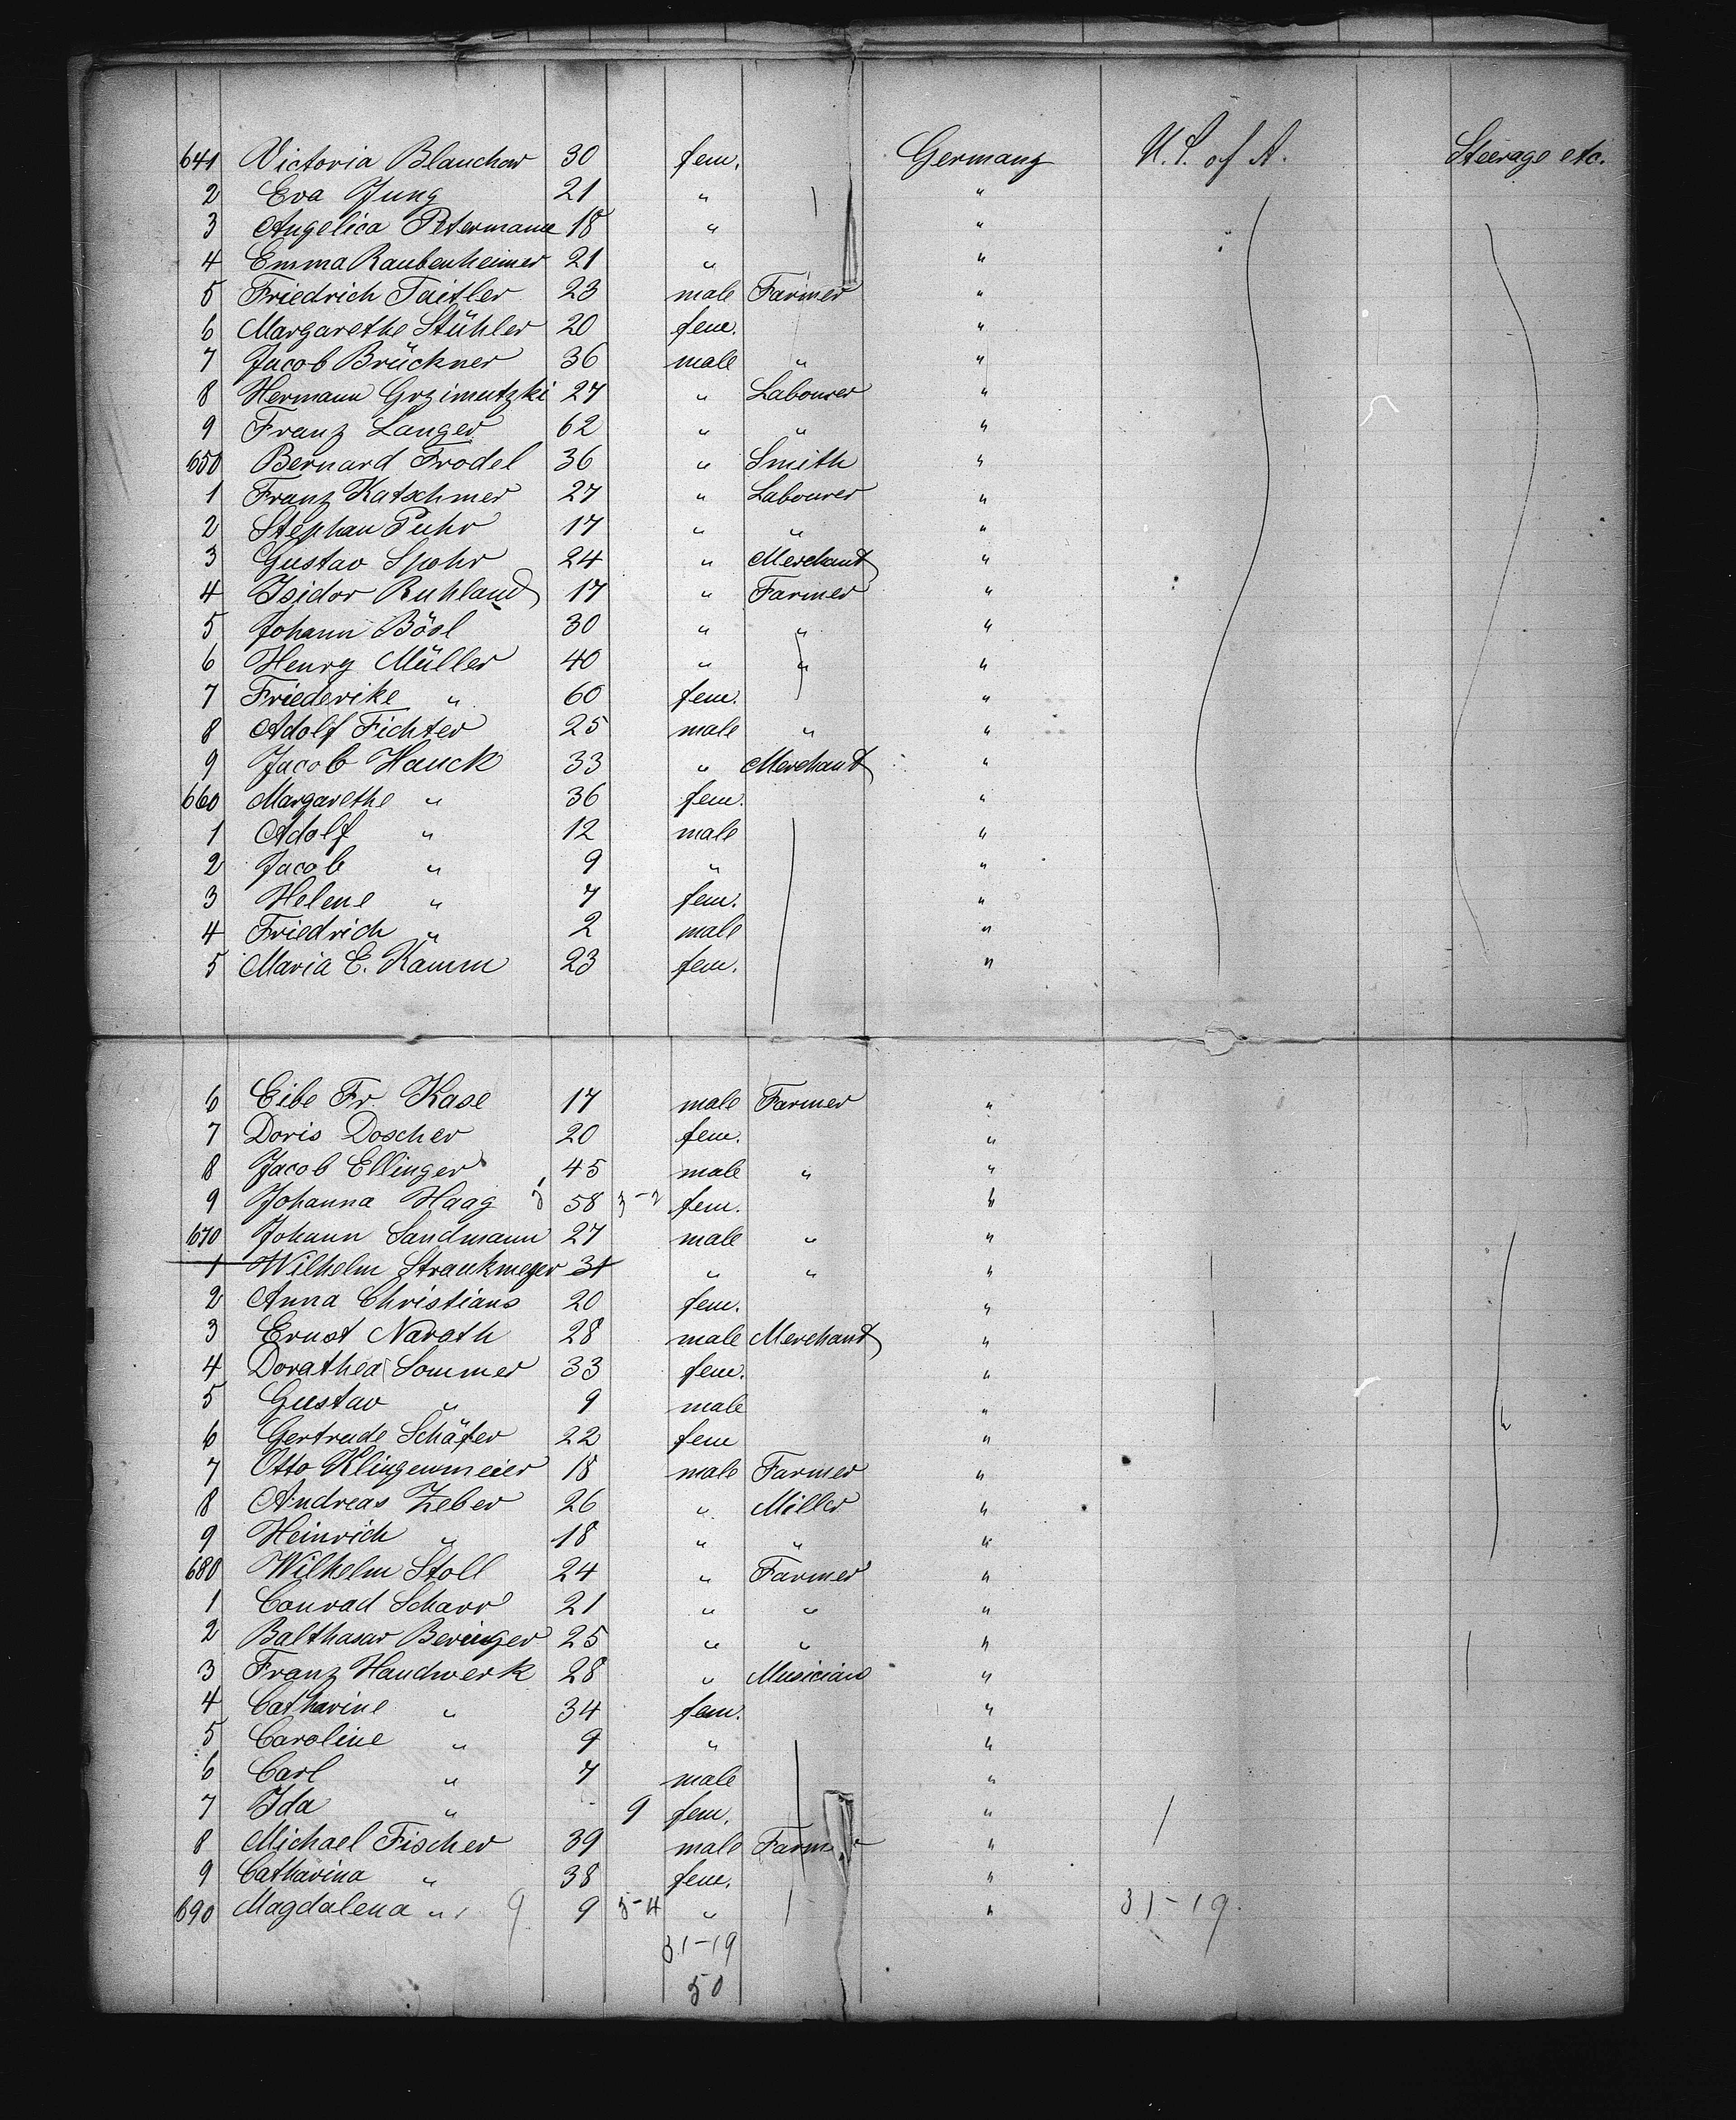 641 Victoria Blanchar 30 fem. Germany U.S. of A. Steerage etc.
2 Eva Jung 21 " "
3 Angelica Petermann 18 " "
4 Emma Raubenheimer 21 " "
5 Friedrich Taitler 23 male Farmer "
6 Margarethe Stühler 20 fem. "
7 Jacob Brückner 36 male " "
8 Hermann Grzimutzki 27 " Labourer "
9 Franz Langer 62 " " "
650 Bernard Frodel 36 " Smith "
1 Franz Katschmer 27 " Labourer "
2 Stephan Puhr 17 " " "
3 Gustav Spohr 24 " Merchant "
4 Isidor Ruhland 17 " Farmer "
5 Johann Bösl 30 " " "
6 Henry Müller 40 " " "
7 Friederike " 60 fem. "
8 Adolf Fichter 25 male " "
9 Jacob Hauck 33 " Merchant "
660 Margarethe " 36 fem. "
1 Adolf " 12 male "
2 Jacob " 9 " "
3 Helene " 7 fem. "
4 Friedrich " 2 male "
5 Maria E. Kamm 23 fem. "
6 Eibe Fr. Kase 17 male Farmer "
7 Doris Doscher 20 fem. "
8 Jacob Ellinger 45 male " "
9 Johanna Haag 58 3-2 fem. "
670 Johann Sandmann 27 male " "
1 Wilhelm Straukmeyer 31 " " "
2 Anna Christians 20 fem. "
3 Ernst Narath 28 male Merchant "
4 Dorathea Sommer 33 fem. "
5 Gustav " 9 male "
6 Gertrude Schäfer 22 fem "
7 Otto Klingenmeier 18 male Farmer "
8 Andreas Zeber 26 " Miller "
9 Heinrich " 18 " " "
680 Wilhelm Stoll 24 " Farmer "
1 Conrad Scharr 21 " " "
2 Balthasar Beringer 25 " " "
3 Franz Handwerk 28 " Musician "
4 Catharine " 34 fem. "
5 Caroline " 9 " "
6 Carl " 7 male "
7 Ida " 9 fem. "
8 Michael Fischer 39 male Farmer "
9 Catharina " 38 fem. "
690 Magdalena " 9 9 5-4 " " 31-19.
31-19
50